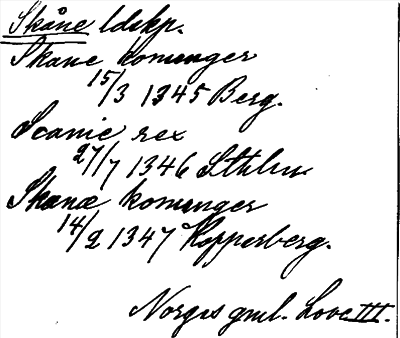 Skåne ldskp.
Skane konunger
15/3 1345 Berg.
Scanie rex
27/7 1346 Sthlm
Skanæ konunger
14/2 1347 Kopperberg.
Norges gml. Love III.